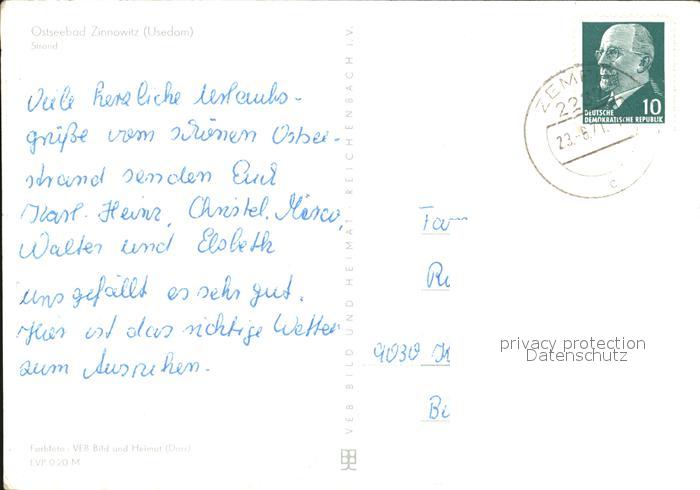 Ostseebad Zinnowitz (Usedom)
Strand
Viele herzliche Urlaubs-
grüße vom schönen Ostsee-
strand senden Euch
Karl-Heinz, Christel, Mirco,
Walter und Elsbeth
Uns gefällt es sehr gut.
Hier ist das richtige Wetter
zum Ausruhen.
Farbfoto: VEB Bild und Heimat (Dres)
EVP 0.20 M
VEB BILD UND HEIMAT REICHENBACH I. V.
DEUTSCHE
DEMOKRATISCHE REPUBLIK
10
ZEMP
222
23.-6.71.-
c
Fam
Ru
9030 K
Bi
privacy protection
Datenschutz